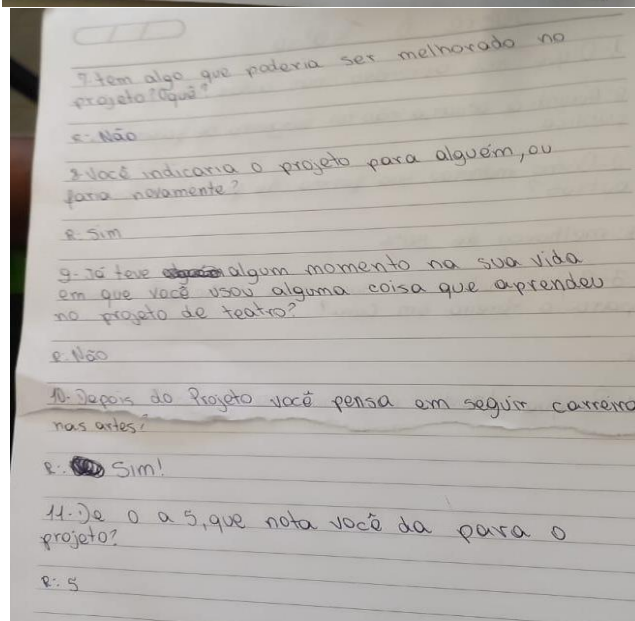 7. tem algo que poderia ser melhorado no
projeto? Oquê?
R: Não
8 Você indicaria o projeto para alguém, ou
faria novamente?
R: Sim
9- Já teve algum momento na sua vida
em que você usou alguma coisa que aprendeu
no projeto de teatro?
R. Não
10- Depois do Projeto você pensa em seguir carreira
nas artes?
R: Sim!
11. De 0 a 5, que nota você da para o
projeto?
R: 5